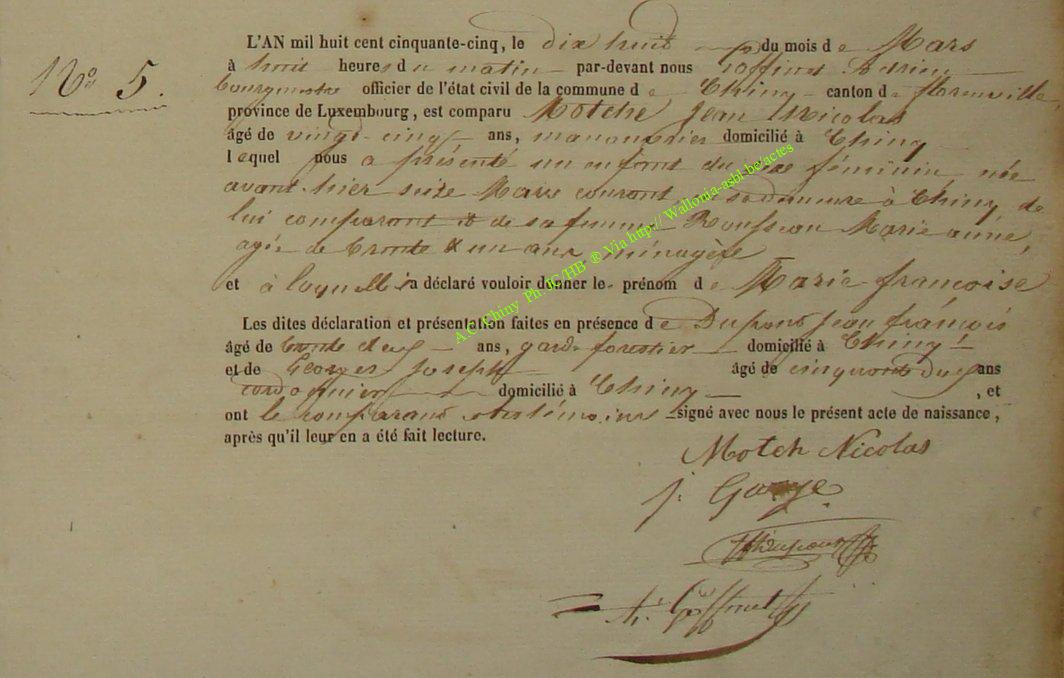 N° 5.
L'AN mil huit cent cinquante-cinq, le dix huit du mois de Mars
à huit heures du matin par-devant nous Goffinet Adrien
bourgmestre officier de l'état civil de la commune de Chiny canton de florenville
province de Luxembourg, est comparu Motche Jean Nicolas
âgé de vingt-cinq ans, manouvrier domicilié à Chiny
lequel nous a présenté un enfant du sexe féminin née
avant-hier seize Mars courant sa demeure à Chiny de
lui comparant & de sa femme Rousseau Marie anne,
agée de trente & un ans ménagère
et à laquelle a déclaré vouloir donner le prénom de Marie françoise
Les dites déclaration et présentation faites en présence de Dupont Jean françois
âgé de trente ans, garde forestier domicilié à Chiny
et de Georges Joseph âgé de cinquante ans
cordonnier domicilié à Chiny, et
ont le comparant et les témoins signé avec nous le présent acte de naissance,
après qu'il leur en a été fait lecture.
Motch Nicolas
j. Gorge
Dupont
A. Goffinet
A.C. Chiny Ph. IC/HB ® Via http:// Wallonia-asbl-be/actes